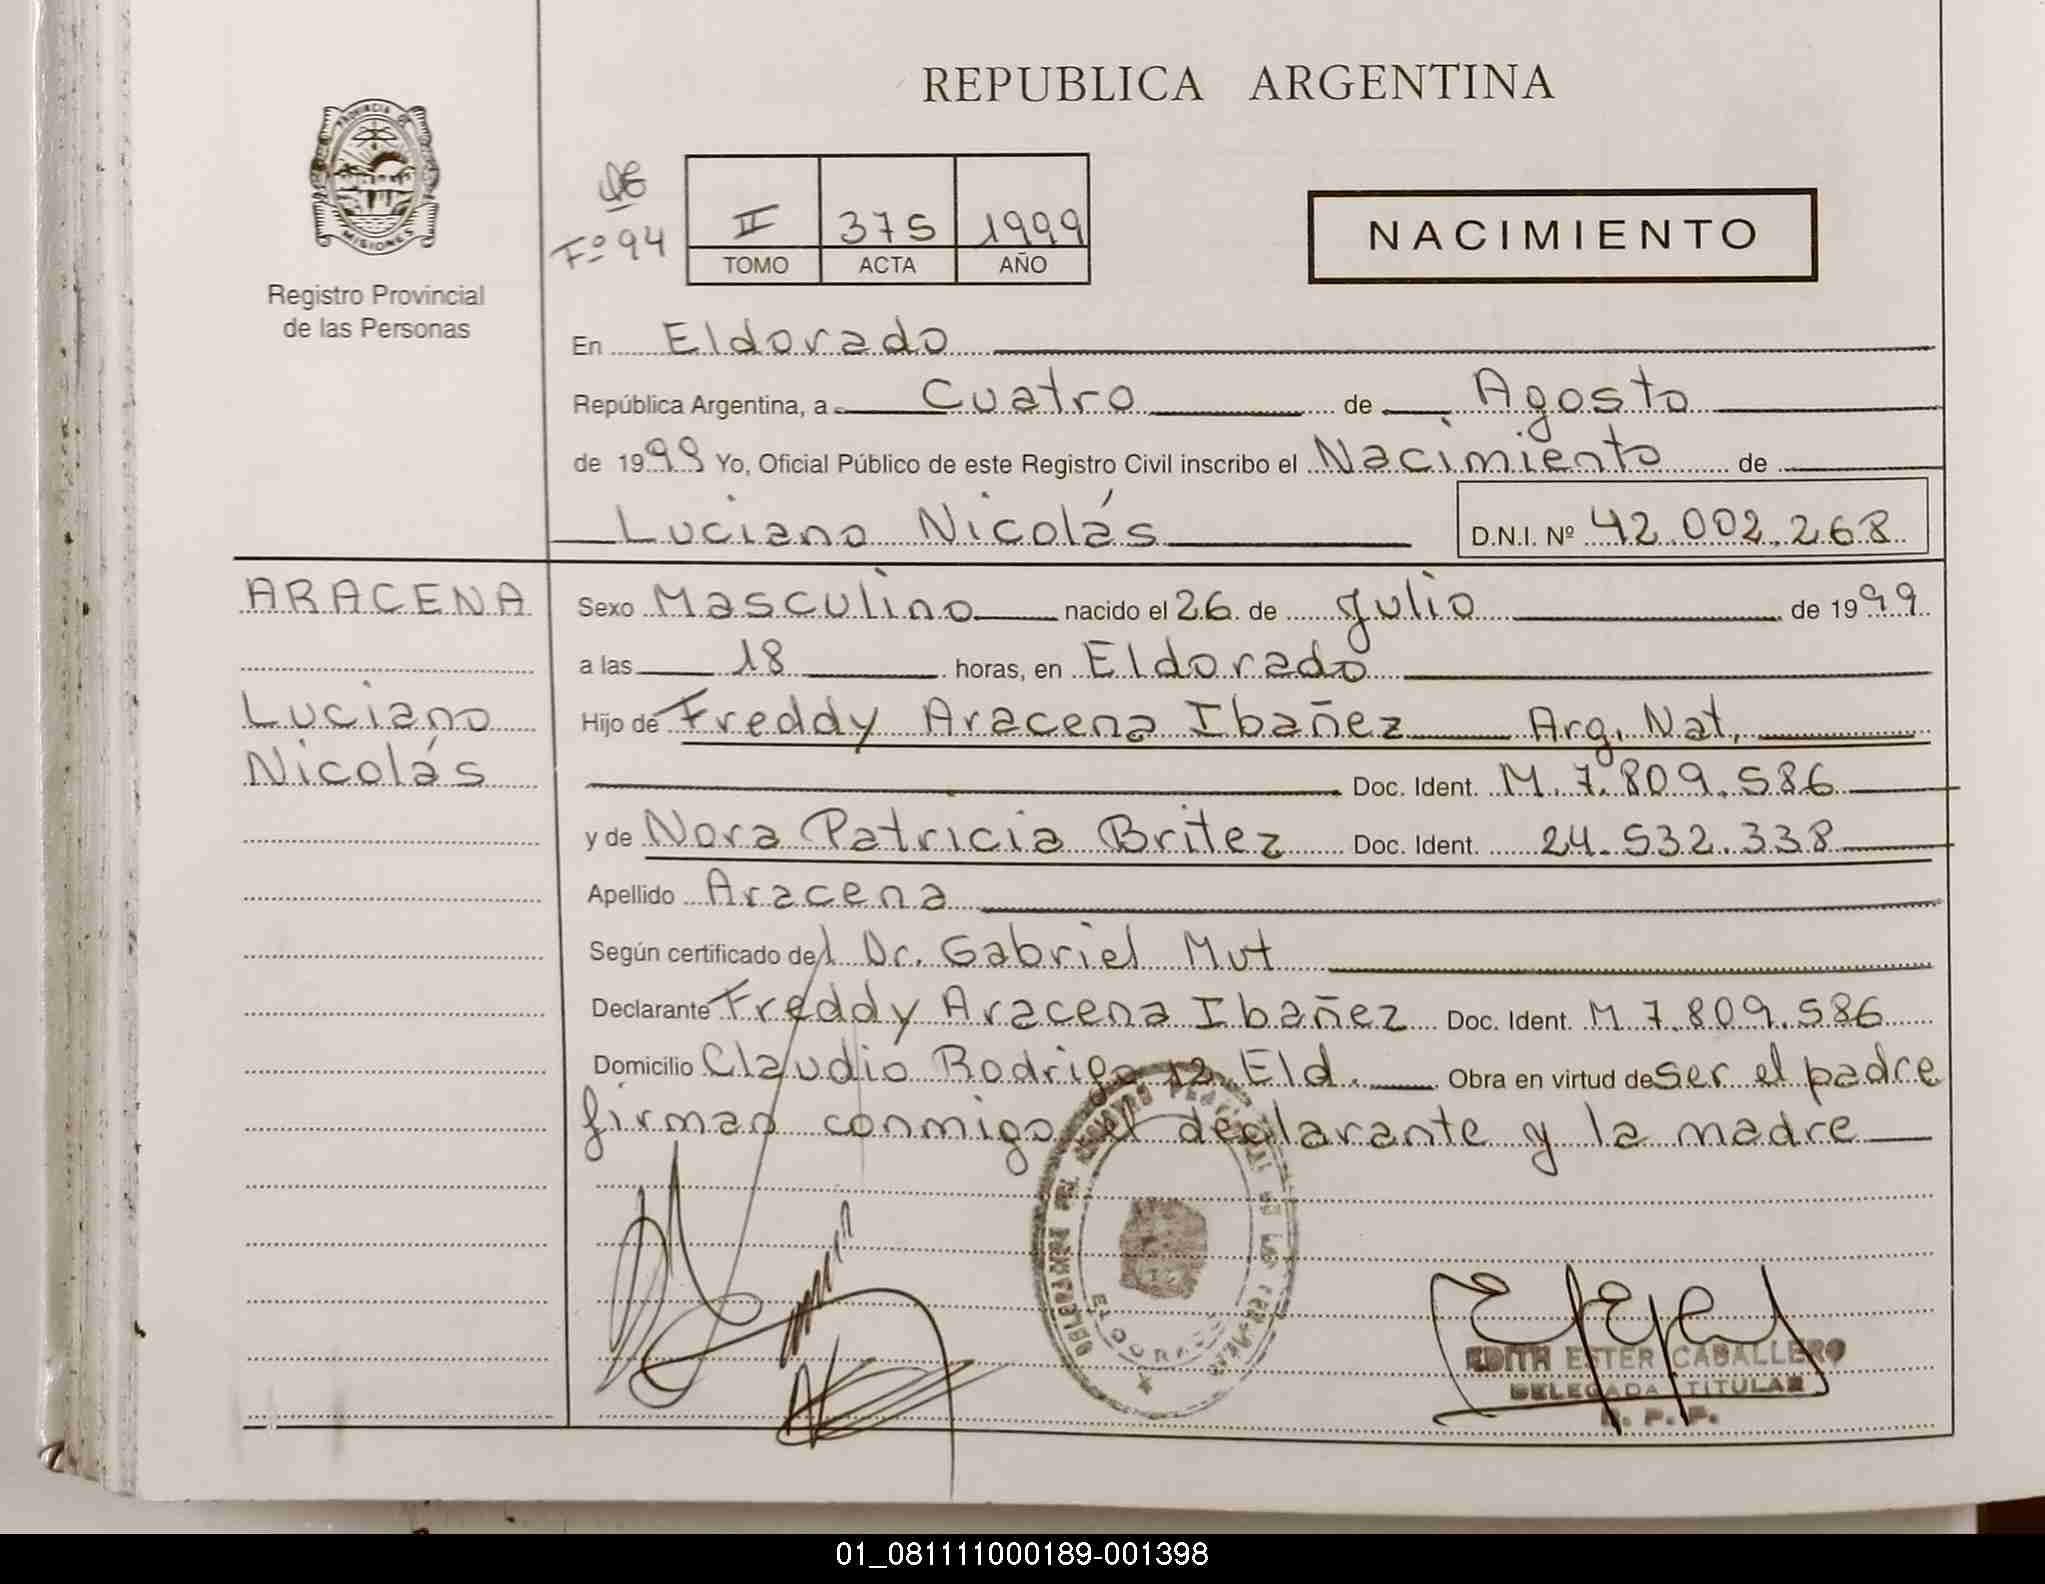 REPUBLICA ARGENTINA
PROVINCIA DE
MISIONES
Registro Provincial
de las Personas
Fº 94
II 375 1999
TOMO ACTA AÑO
NACIMIENTO
En Eldorado
República Argentina, a Cuatro de Agosto
de 1999 Yo, Oficial Público de este Registro Civil inscribo el Nacimiento de
Luciano Nicolás D.N.I. Nº 42.002.268
ARACENA
Luciano
Nicolás
Sexo Masculino nacido el 26 de Julio de 1999
a las 18 horas, en Eldorado
Hijo de Freddy Aracena Ibañez Arg. Nat.
Doc. Ident. M. 7.809.586
y de Nora Patricia Britez Doc. Ident. 24.532.338
Apellido Aracena
Según certificado del Dr. Gabriel Mut
Declarante Freddy Aracena Ibañez Doc. Ident. M 7.809.586
Domicilio Claudio Rodrigo 12 Eld. Obra en virtud de ser el padre
firman conmigo el declarante y la madre
EDITH ESTER CABALLERO
DELEGADA TITULAR
R. P. P.
01_081111000189-001398